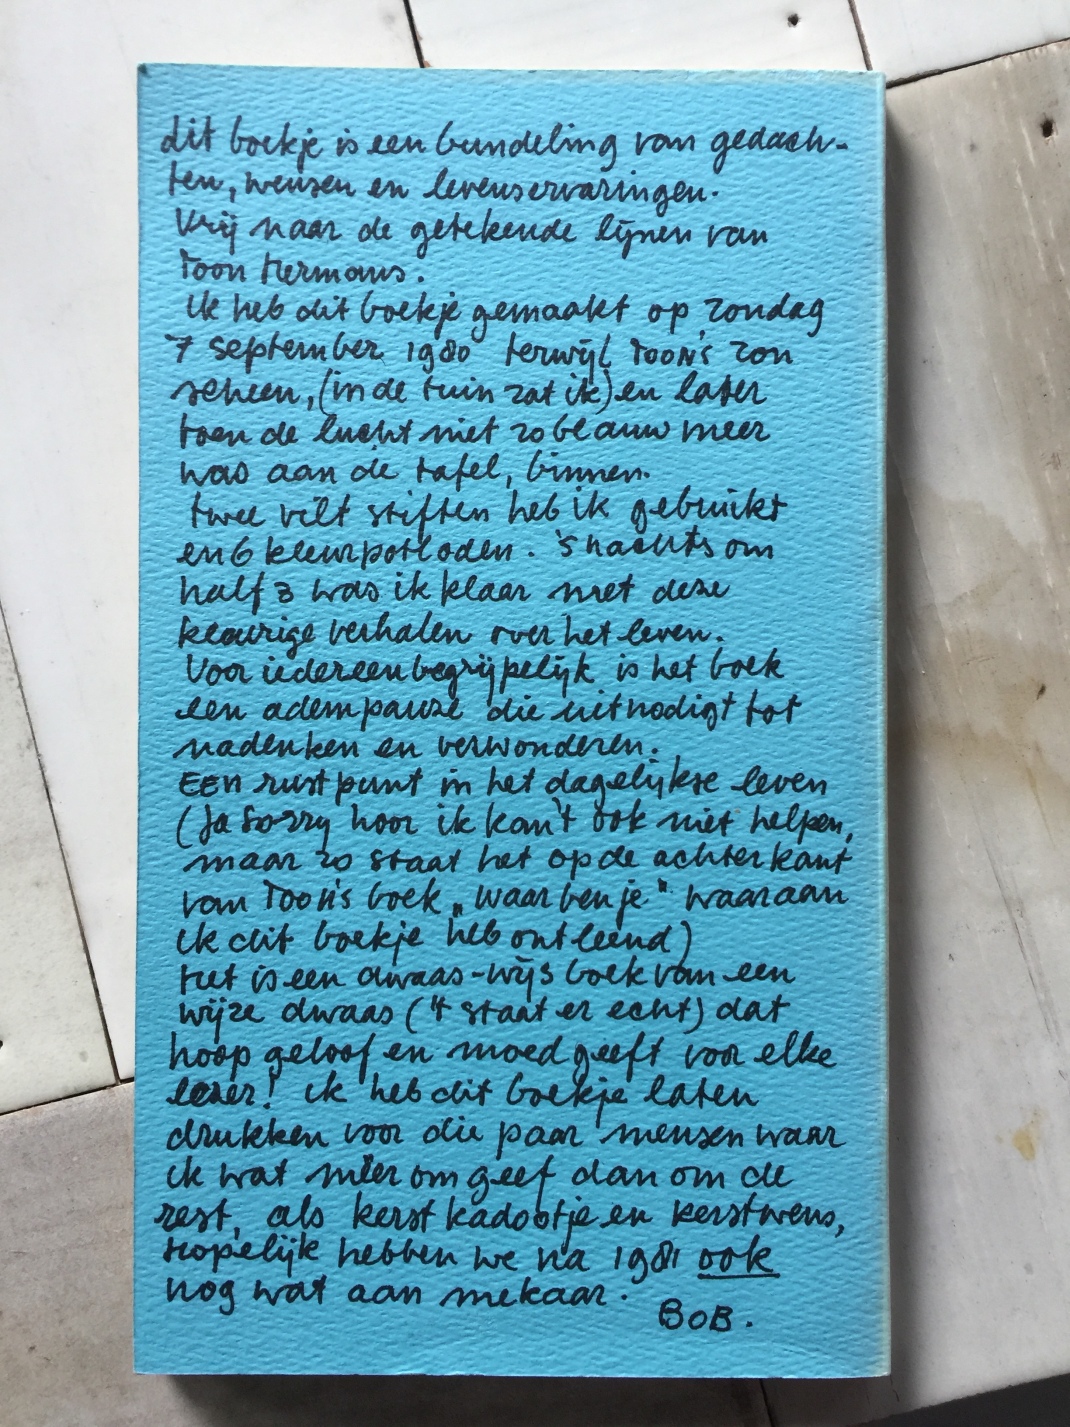 dit boekje is een bundeling van gedach-
ten, wensen en levenservaringen.
Vrij naar de getekende lijnen van
Toon Hermans.
Ik heb dit boekje gemaakt op zondag
7 september 1980 terwijl Toon's zon
scheen, (in de tuin zat ik) en later
toen de lucht niet zo blauw meer
was aan de tafel, binnen.
twee vilt stiften heb ik gebruikt
en 6 kleurpotloden. 's nachts om
half 3 was ik klaar met deze
kleurige verhalen over het leven.
Voor iedereen begrijpelijk is het boek
een adempauze die uitnodigt tot
nadenken en verwonderen.
EEn rustpunt in het dagelijkse leven
(Ja Sorry hoor ik kan 't ook niet helpen,
maar zo staat het op de achterkant
van Toon's boek „Waar ben je" waaraan
ik dit boekje heb ontleend)
Het is een dwaas-wijs boek van een
wijze dwaas ('t staat er echt) dat
hoop geloof en moed geeft voor elke
lezer! ik heb dit boekje laten
drukken voor die paar mensen waar
ik wat méér om geef dan om de
rest, als kerstkadootje en kerstwens,
Hopelijk hebben we na 1981 ook
nog wat aan mekaar.
BOB.